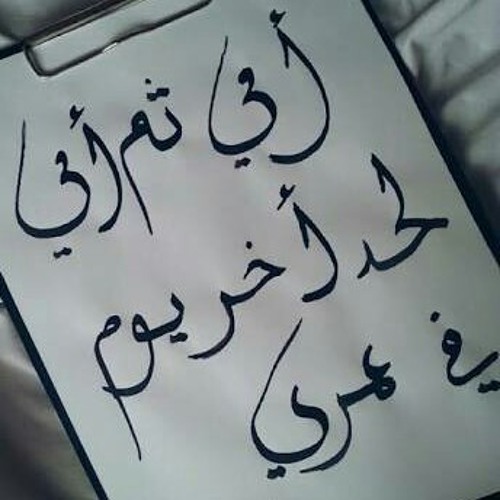 أمي ثم أمي
لحد أخر يوم
في عمري